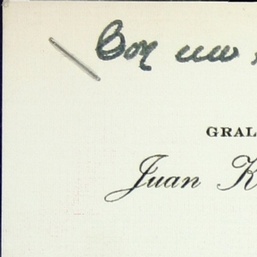 Con un
GRAL
Juan K